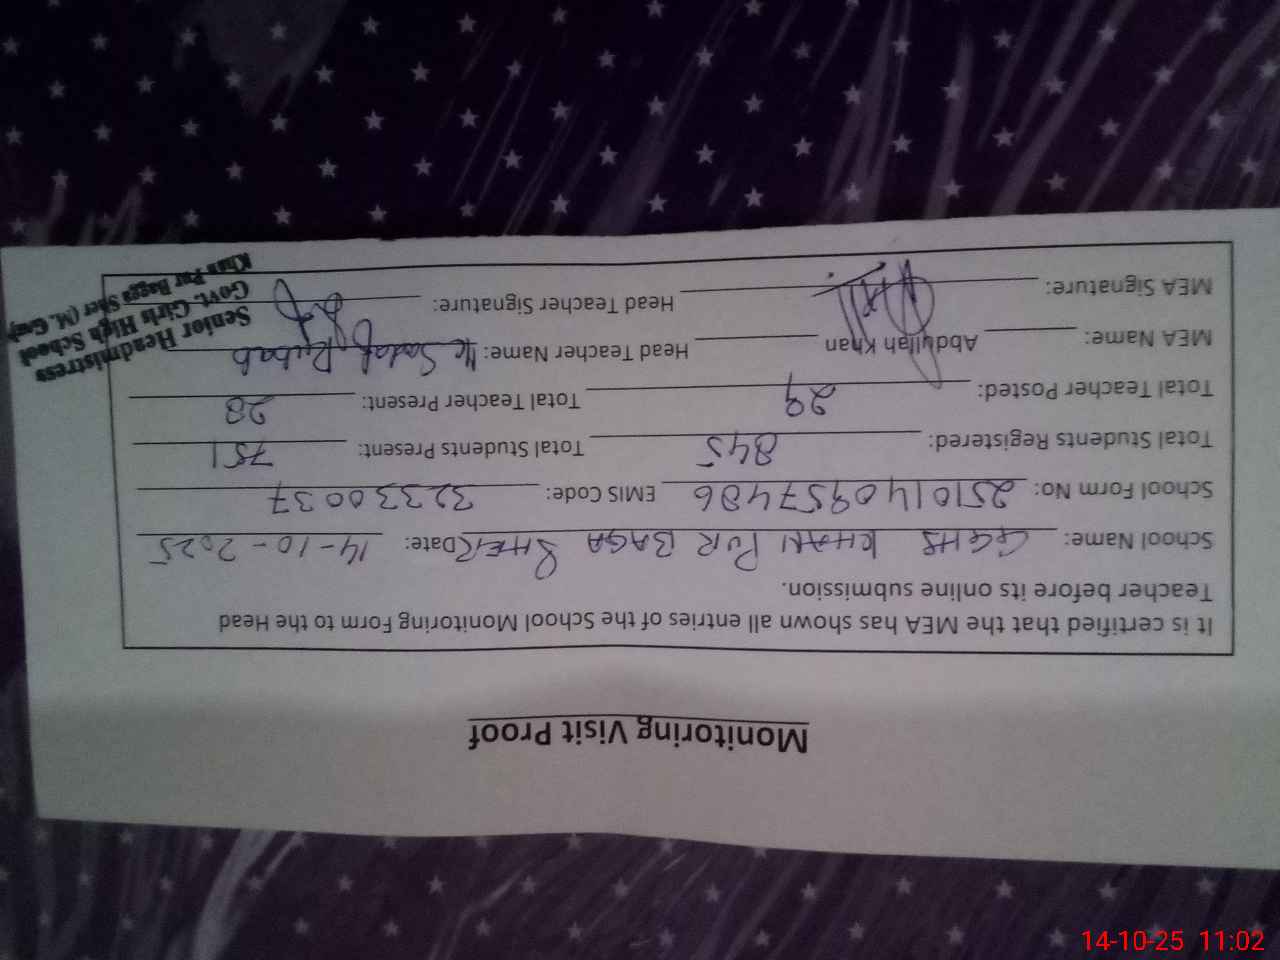 Monitoring Visit Proof
It is certified that the MEA has shown all entries of the School Monitoring Form to the Head
Teacher before its online submission.
School Name: GGHS KHAN PUR BAGA SHER Date: 14-10-2025
School Form No: 2510140957486 EMIS Code: 32330037
Total Students Registered: 845 Total Students Present: 751
Total Teacher Posted: 29 Total Teacher Present: 28
MEA Name: Abdullah Khan Head Teacher Name: Sadaf Rubab
MEA Signature: Head Teacher Signature:
Senior Headmistress
Govt. Girls High School
Khan Pur Bagga Sher (M. Garh)
14-10-25 11:02